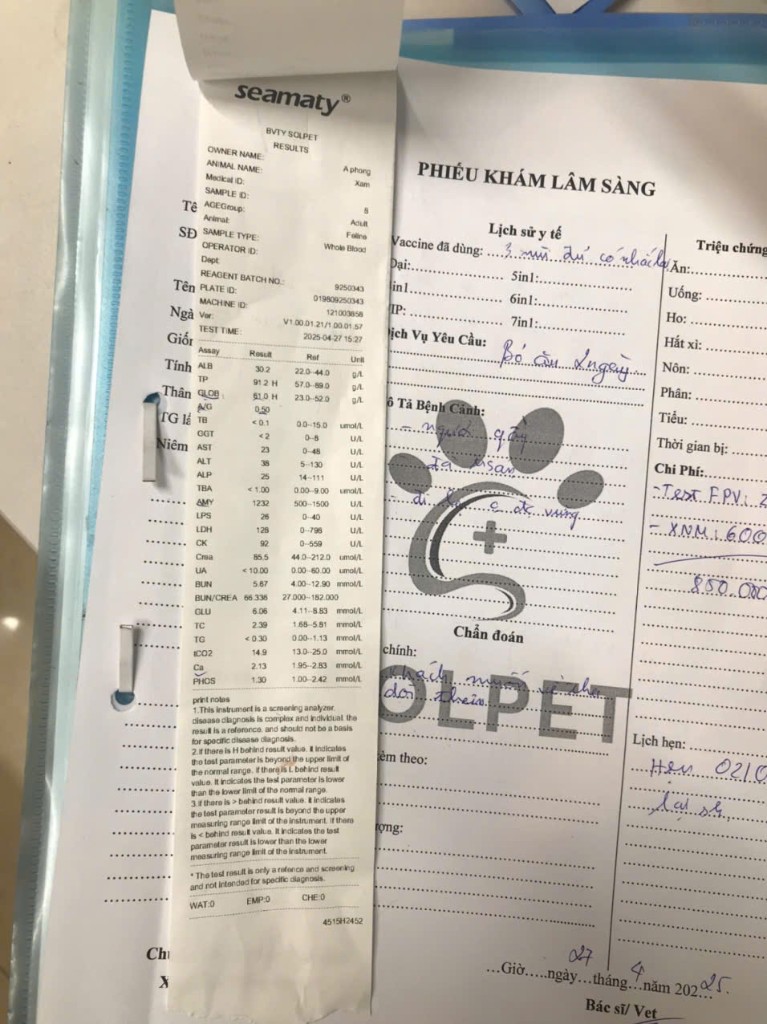 seamaty®
BVTY SOLPET
RESULTS
OWNER NAME: A phong
ANIMAL NAME: Xam
Medical ID:
SAMPLE ID: 8
AGEGroup: Adult
Animal: Feline
SAMPLE TYPE: Whole Blood
OPERATOR ID:
Dept:
REAGENT BATCH NO.: 9250343
PLATE ID: 019809250343
MACHINE ID: 121003858
Ver: V1.00.01.21/1.00.01.57
TEST TIME: 2025-04-27 15:27
Assay Result Ref Unit
ALB 30.2 22.0--44.0 g/L
TP 91.2 H 57.0--89.0 g/L
GLOB 61.0 H 23.0--52.0 g/L
A/G 0.50
TB <0.1 0.0--15.0 umol/L
GGT <2 0--8 U/L
AST 23 0--48 U/L
ALT 38 5--130 U/L
ALP 25 14--111 U/L
TBA <1.00 0.00--9.00 umol/L
AMY 1232 500--1500 U/L
LPS 26 0--40 U/L
LDH 128 0--798 U/L
CK 92 0--559 U/L
Crea 85.5 44.0--212.0 umol/L
UA <10.00 0.00--60.00 umol/L
BUN 5.67 4.00--12.90 mmol/L
BUN/CREA 66.336 27.000--182.000
GLU 6.06 4.11--8.83 mmol/L
TC 2.39 1.68--5.81 mmol/L
TG <0.30 0.00--1.13 mmol/L
tCO2 14.9 13.0--25.0 mmol/L
Ca 2.13 1.95--2.83 mmol/L
PHOS 1.30 1.00--2.42 mmol/L
print notes
1.This instrument is a screening analyzer.
disease diagnosis is complex and individual. the
result is a reference, and should not be a basis
for specific disease diagnosis.
2.if there is H behind result value. It indicates
the test parameter is beyond the upper limit of
the normal range. if there is L behind result
value. It indicates the test parameter is lower
than the lower limit of the normal range.
3.if there is > behind result value. It indicates
the test parameter result is beyond the upper
measuring range limit of the instrument. If there
is < behind result value. It indicates the test
parameter result is lower than the lower
measuring range limit of the instrument.
* The test result is only a refence and screening
and not intended for specific diagnosis.
WAT:0 EMP:0 CHE:0
4515H2452
PHIẾU KHÁM LÂM SÀNG
Tê
SĐ
Tên
Ngà
Giốn
Tính
Thân
TG lấ
Niêm
Chủ
X
Lịch sử y tế
Vaccine đã dùng: 3 mũi đủ có nhắc lại
Dại: 5in1:
in1 6in1:
IP: 7in1:
ịch Vụ Yêu Cầu:
Bỏ ăn 2 ngày
ô Tả Bệnh Cảnh:
- người gầy
OLPET
Chẩn đoán
chính:
khách
èm theo:
ượng:
Triệu chứng
Ăn:
Uống:
Ho:
Hắt xì:
Nôn:
Phân:
Tiểu:
Thời gian bị:
Chi Phí:
- Test FPV: 2
- XNM: 600
850.000
Lịch hẹn:
Hẹn
...Giờ....ngày 27 tháng 4 năm 2025.
Bác sĩ/ Vet